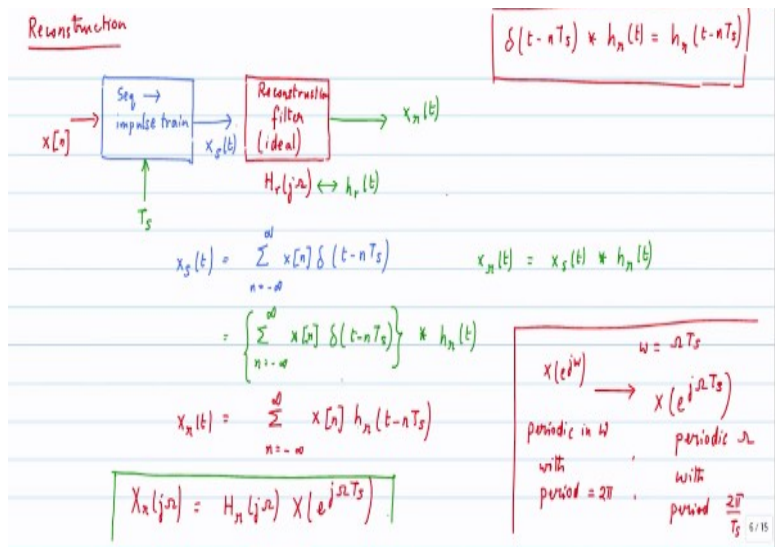 Reconstruction
δ(t-nTs) * hr(t) = hr(t-nTs)
x[n]
Seq →
impulse train
xs(t)
Ts
Reconstruction
filter
(ideal)
xr(t)
Hr(jΩ) ↔ hr(t)
xs(t) = ∞ Σ n=-∞ x[n] δ(t-nTs)
xr(t) = xs(t) * hr(t)
= { ∞ Σ n=-∞ x[n] δ(t-nTs) } * hr(t)
xr(t) = ∞ Σ n=-∞ x[n] hr(t-nTs)
Xr(jΩ) = Hr(jΩ) X(e^jΩTs)
ω = ΩTs
X(e^jω) → X(e^jΩTs)
periodic in ω
with
period = 2π
periodic Ω
with
period 2π/Ts
6/15